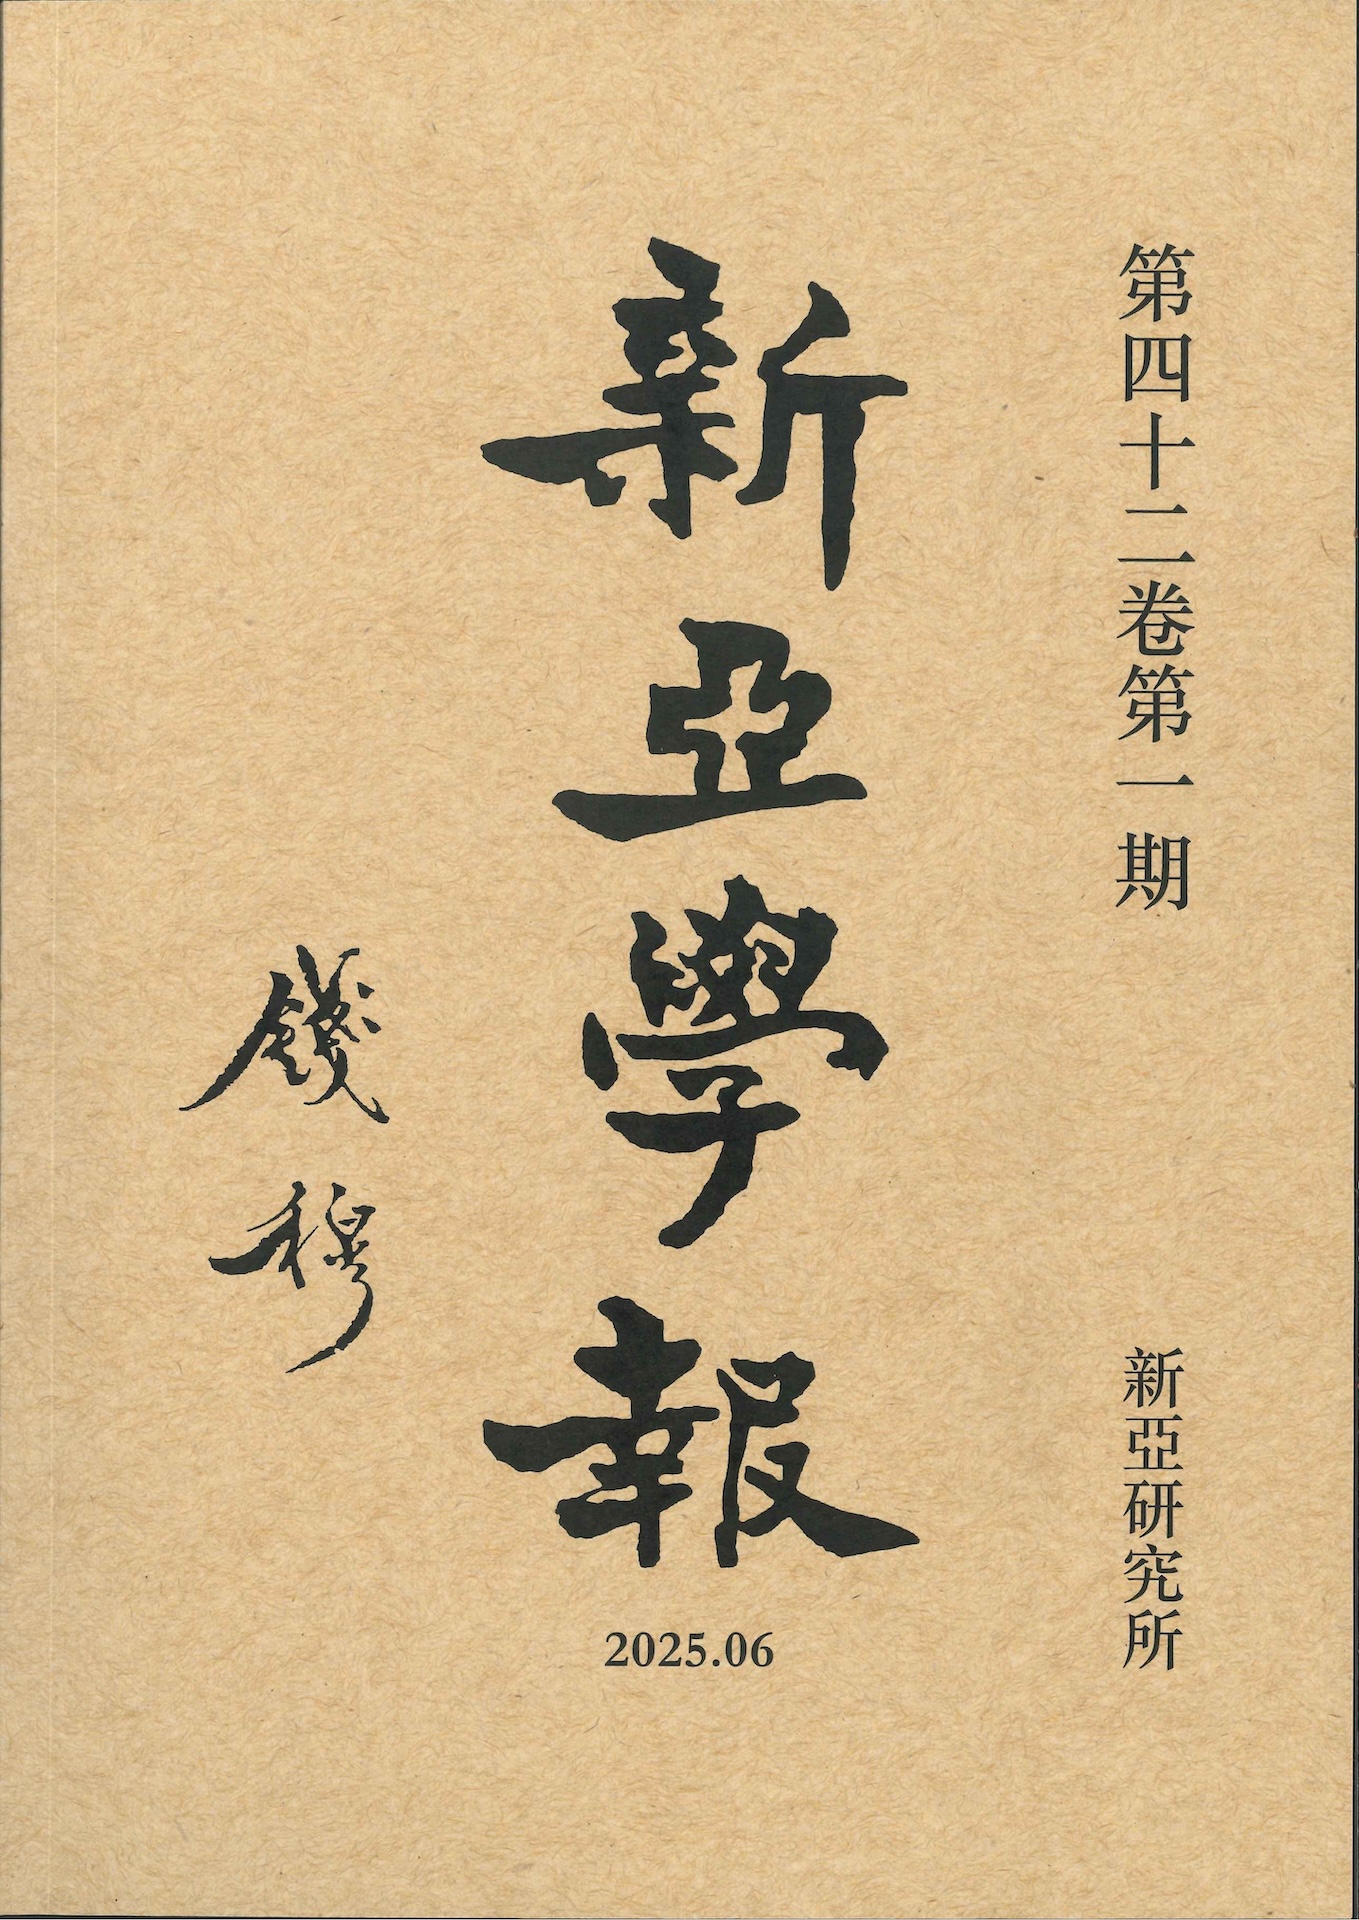 第四十二卷第一期
新亞研究所
新亞學報
2025.06
錢穆